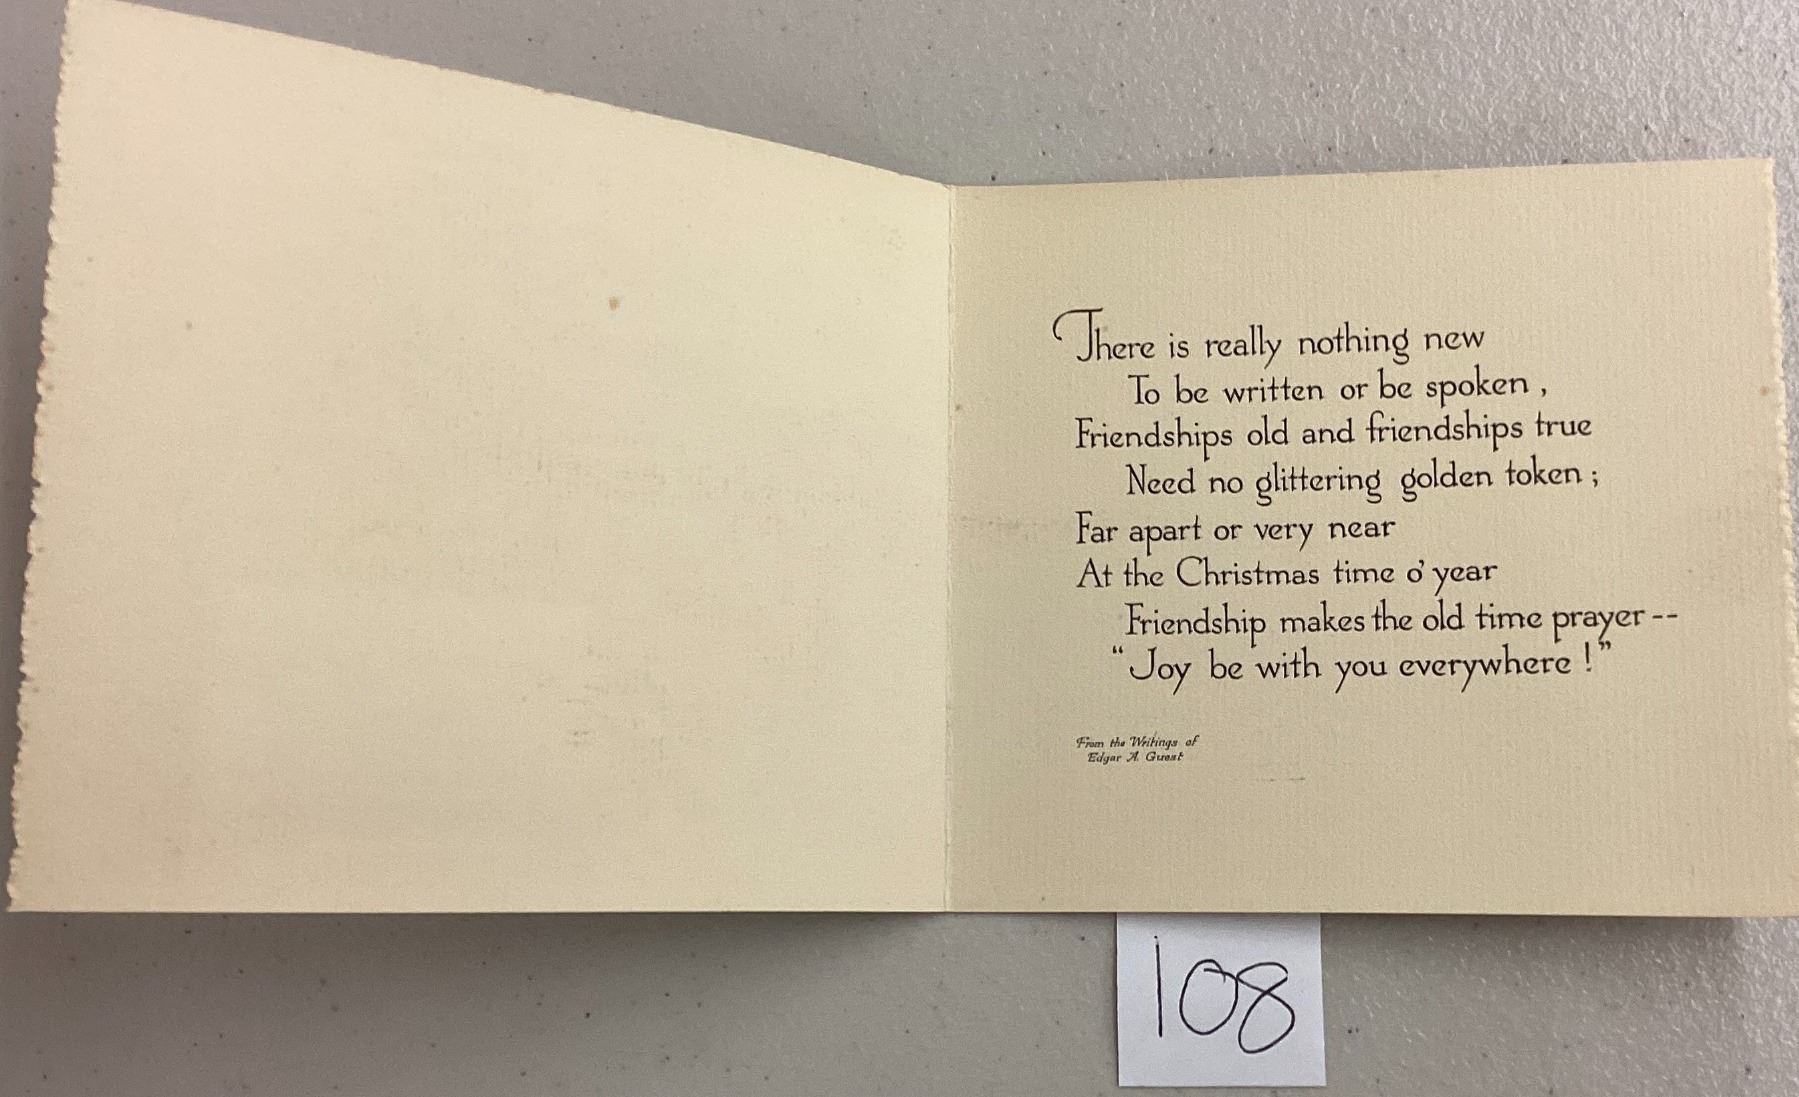 There is really nothing new
To be written or be spoken,
Friendships old and friendships true
Need no glittering golden token;
Far apart or very near
At the Christmas time o' year
Friendship makes the old time prayer--
"Joy be with you everywhere!"
From the Writings of
Edgar A. Guest
108